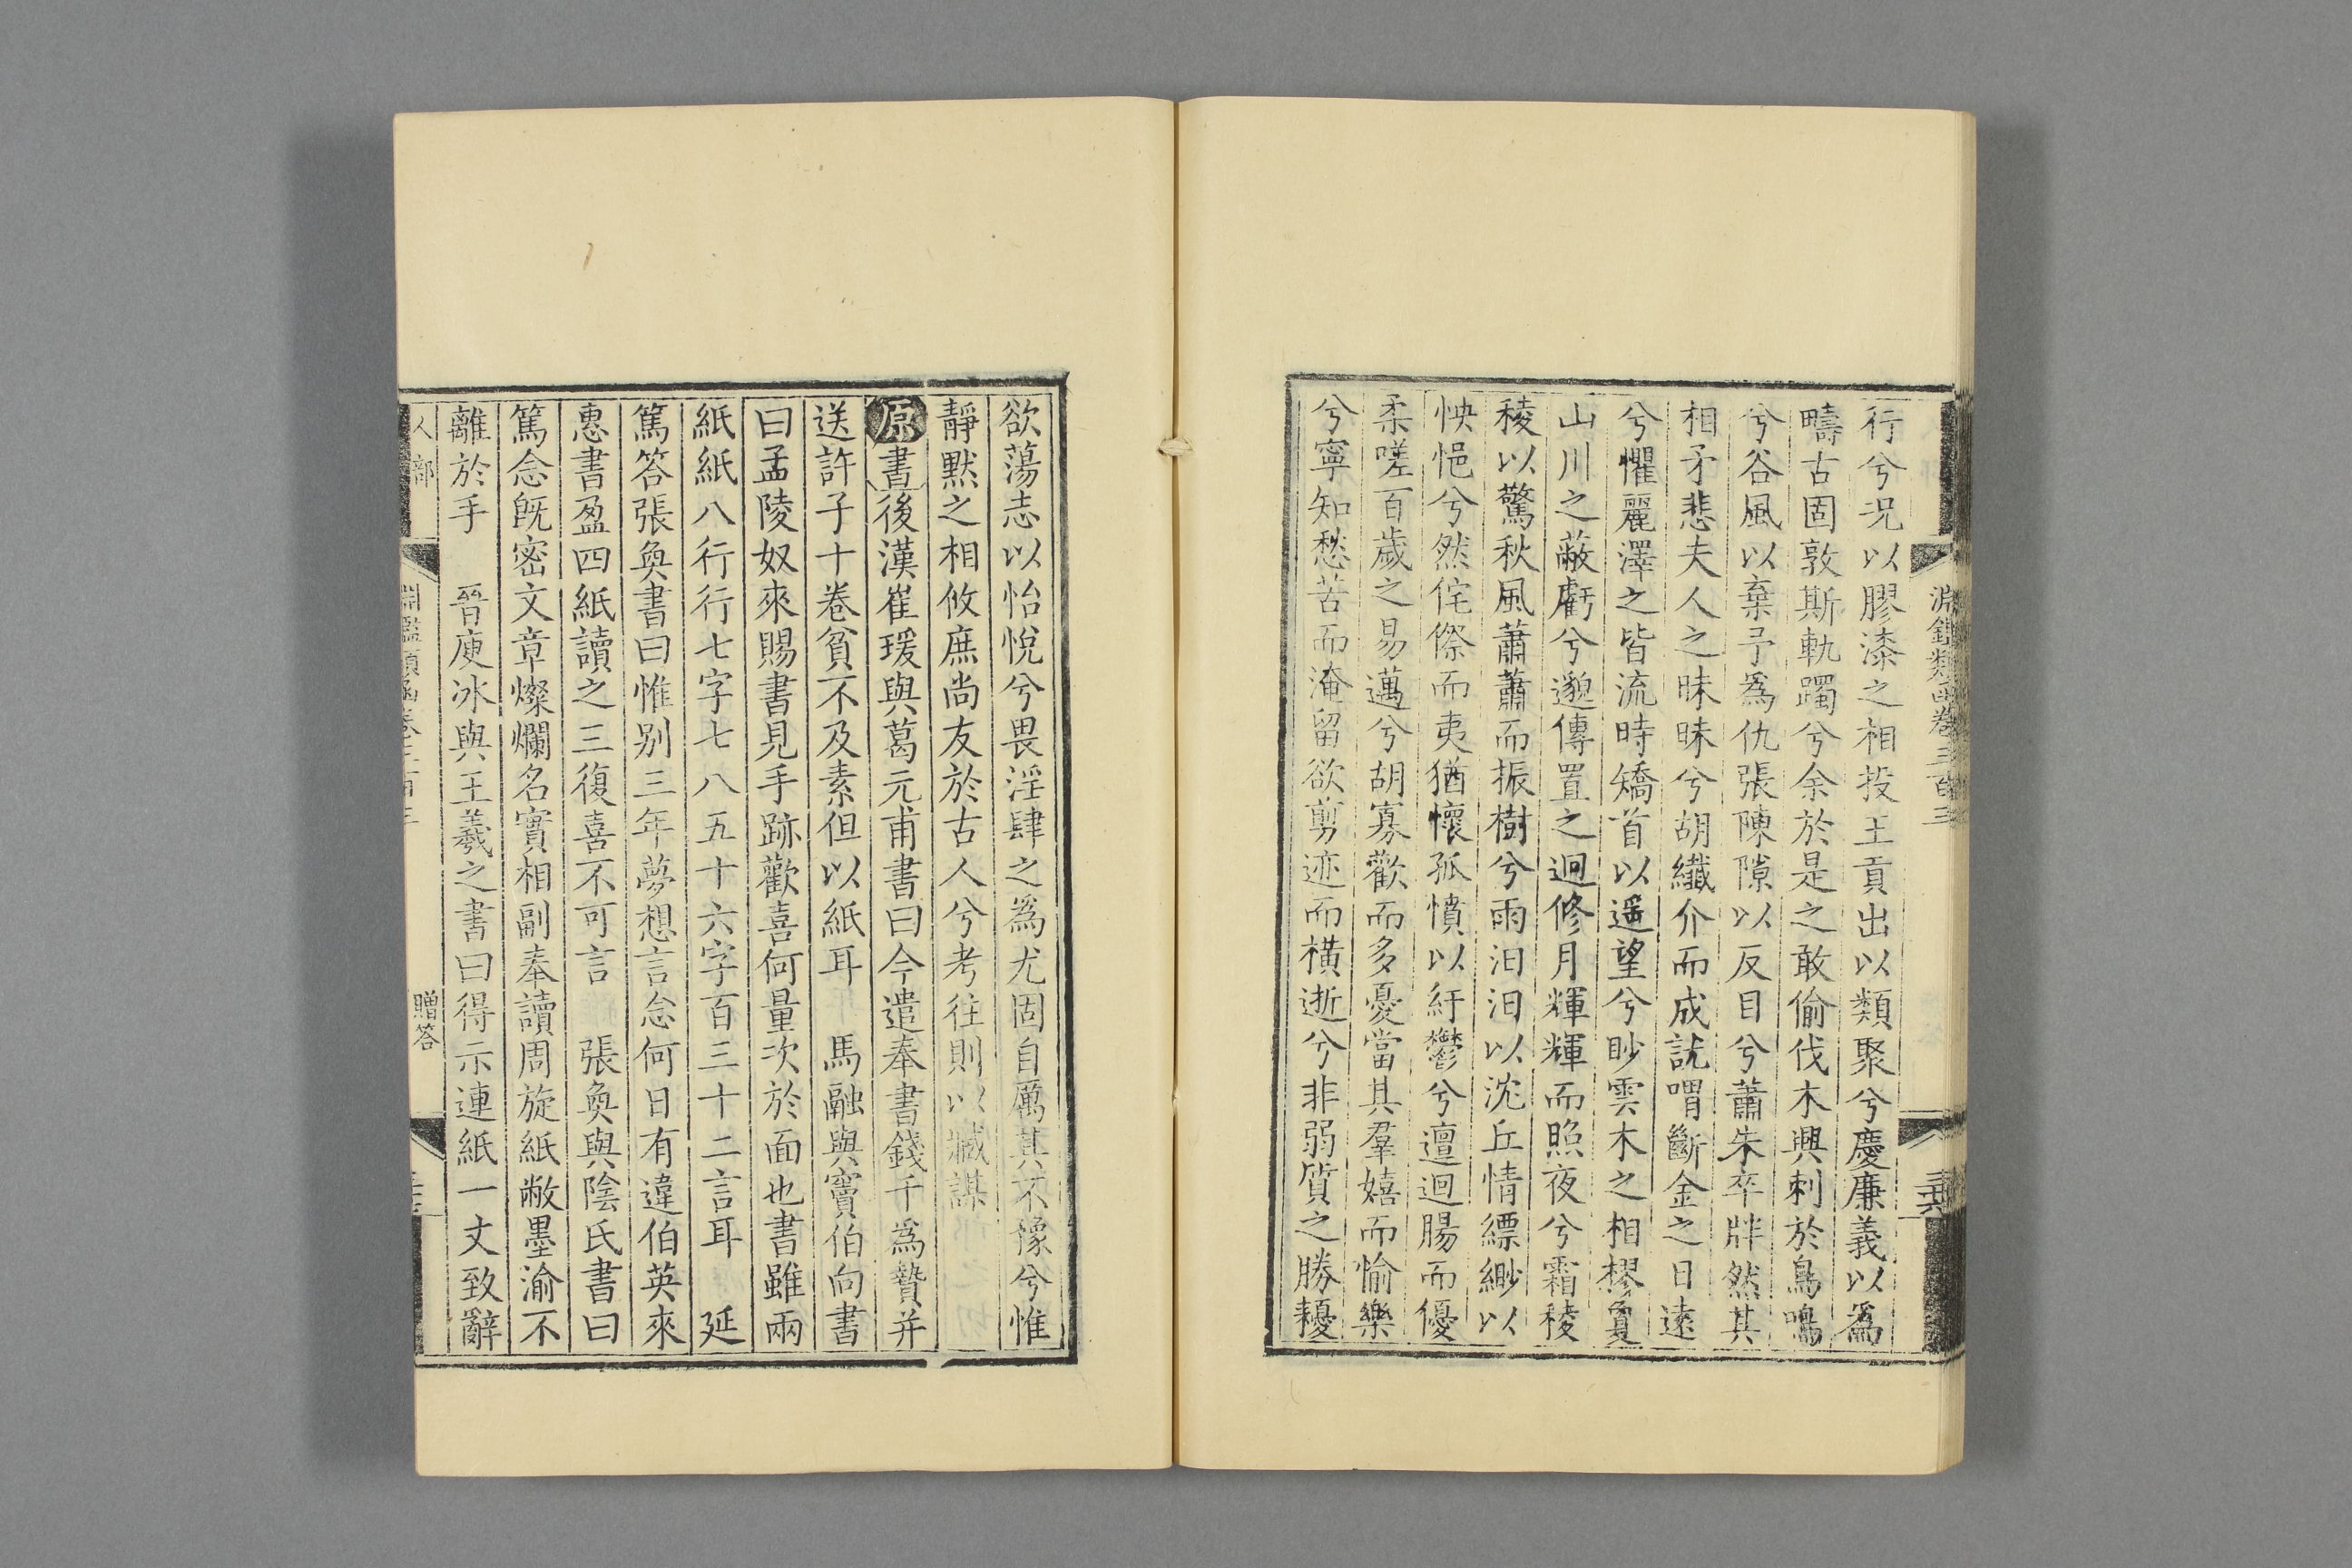 淵鑑類函卷三百三
行兮况以膠漆之相投王貢出以類聚兮慶廉義以爲
疇古固敦斯軌躅兮余於是之敢偷伐木興刺於鳥鳴
兮谷風以棄予爲仇張陳隙以反目兮蕭朱卒牉然其
相矛悲夫人之昧昧兮胡纖介而成訧喟斷金之日遠
兮懼麗澤之皆流時矯首以遥望兮眇雲木之相樛敻
山川之蔽虧兮邈傳置之迴修月輝輝而照夜兮霜稜
稜以驚秋風蕭蕭而振樹兮雨汩汩以沈丘情縹緲以
怏悒兮然侘傺而夷猶懷孤憤以紆鬱兮邅迴腸而優
柔嗟百歲之易邁兮胡寡歡而多憂當其羣嬉而愉樂
兮寧知愁苦而淹留欲剪迹而橫逝兮非弱質之勝耰
欲蕩志以怡悅兮畏淫肆之爲尤固自厲其不豫兮惟
靜默之相攸庶尚友於古人兮考往則以臧謀
原書後漢崔瑗與葛元甫書曰今遣奉書錢千爲贄并
送許子十卷貧不及素但以紙耳 馬融與竇伯向書
曰孟陵奴來賜書見手跡歡喜何量次於面也書雖兩
紙紙八行行七字七八五十六字百三十二言耳 延
篤答張奐書曰惟别三年夢想言念何日有違伯英來
惠書盈四紙讀之三復喜不可言 張奐與陰氏書曰
篤念旣密文章燦爛名實相副奉讀周旋紙敝墨渝不
離於手 晉庾冰與王羲之書曰得示連紙一丈致辭
人部 淵鑑類函卷三百三 贈答